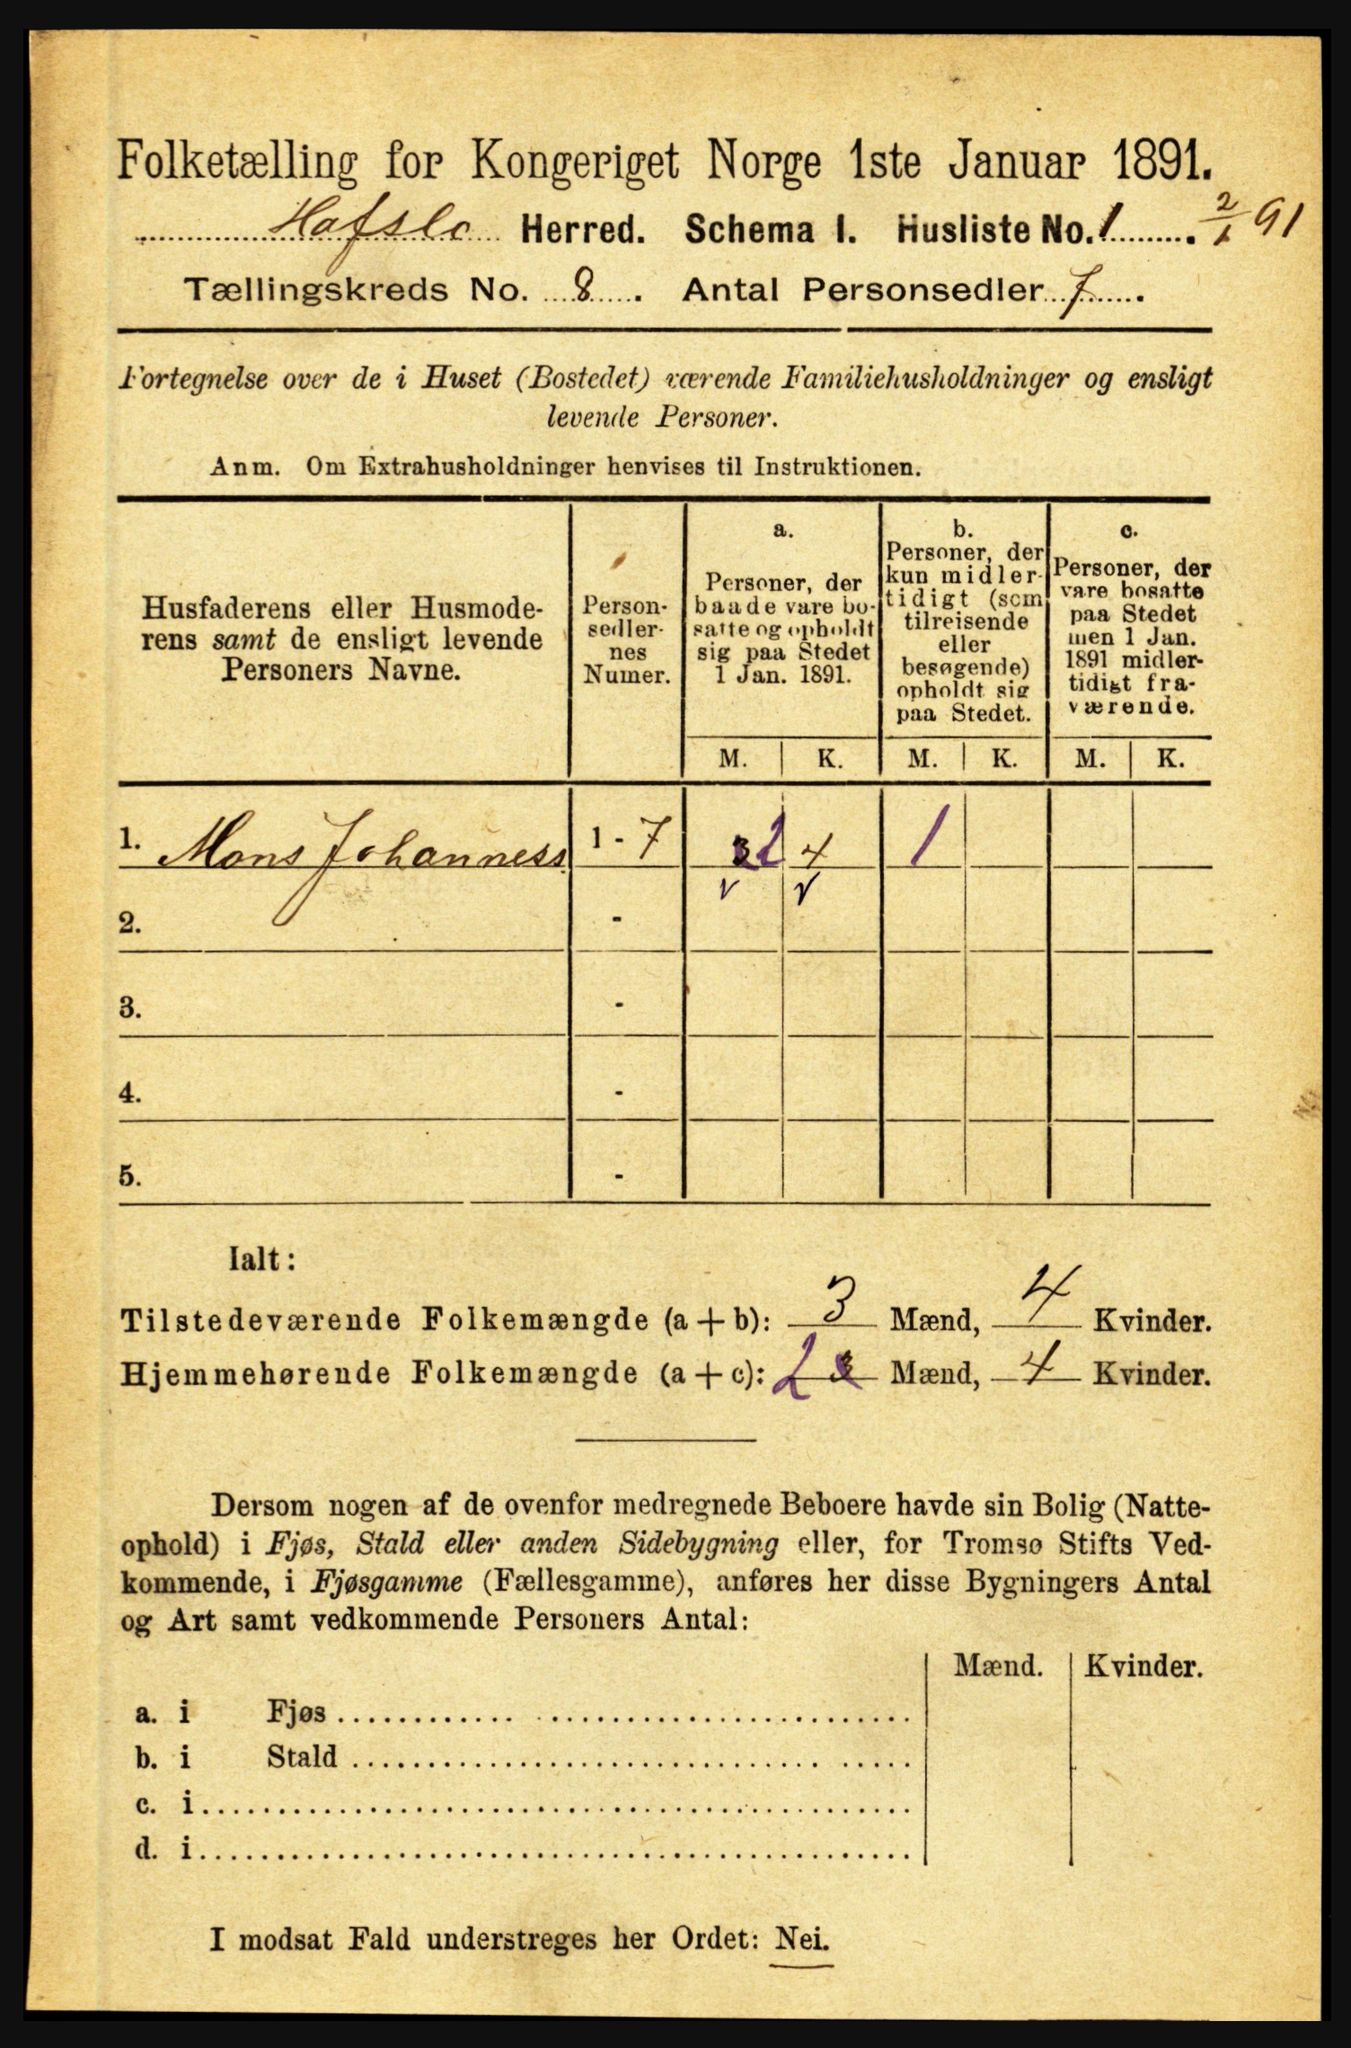 Folketælling for Kongeriget Norge 1ste Januar 1891.
Hafslo Herred. Schema I. Husliste No. 1. 2/1 91
Tællingskreds No. 8. Antal Personsedler 7.
Fortegnelse over de i Huset (Bostedet) værende Familiehusholdninger og ensligt
levende Personer.
Anm. Om Extrahusholdninger henvises til Instruktionen.
Husfaderens eller Husmode-
rens samt de ensligt levende
Personers Navne.
Person-
sedler-
nes
Numer.
a.
Personer, der
baade vare bo-
satte og opholdt
sig paa Stedet
1 Jan. 1891.
b.
Personer, der
kun midler-
tidigt (som
tilreisende
eller
besøgende)
opholdt sig
paa Stedet.
c.
Personer, der
vare bosatte
paa Stedet
men 1 Jan.
1891 midler-
tidigt fra-
værende.
M. K. M. K. M. K.
1. Mons Johanness 1 - 7 3 2 4 1
2. -
3. -
4. -
5. -
Ialt:
Tilstedeværende Folkemængde (a+b): 3 Mænd, 4 Kvinder.
Hjemmehørende Folkemængde (a+c): 2 3 Mænd, 4 Kvinder.
Dersom nogen af de ovenfor medregnede Beboere havde sin Bolig (Natte-
ophold) i Fjøs, Stald eller anden Sidebygning eller, for Tromsø Stifts Ved-
kommende, i Fjøsgamme (Fællesgamme), anføres her disse Bygningers Antal
og Art samt vedkommende Personers Antal:
Mænd. Kvinder.
a. i Fjøs
b. i Stald
c. i
d. i
I modsat Fald understreges her Ordet: Nei.